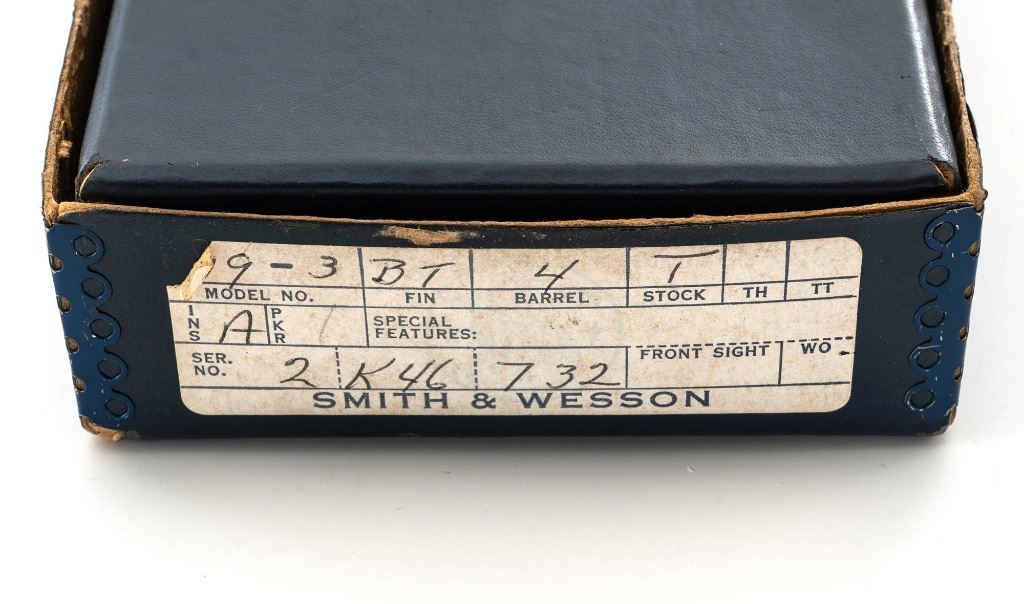 9-3 BT 4 T
MODEL NO. FIN BARREL STOCK TH TT
INS A PKR 1 SPECIAL FEATURES:
SER. NO. 2 K46 732 FRONT SIGHT WO
SMITH & WESSON